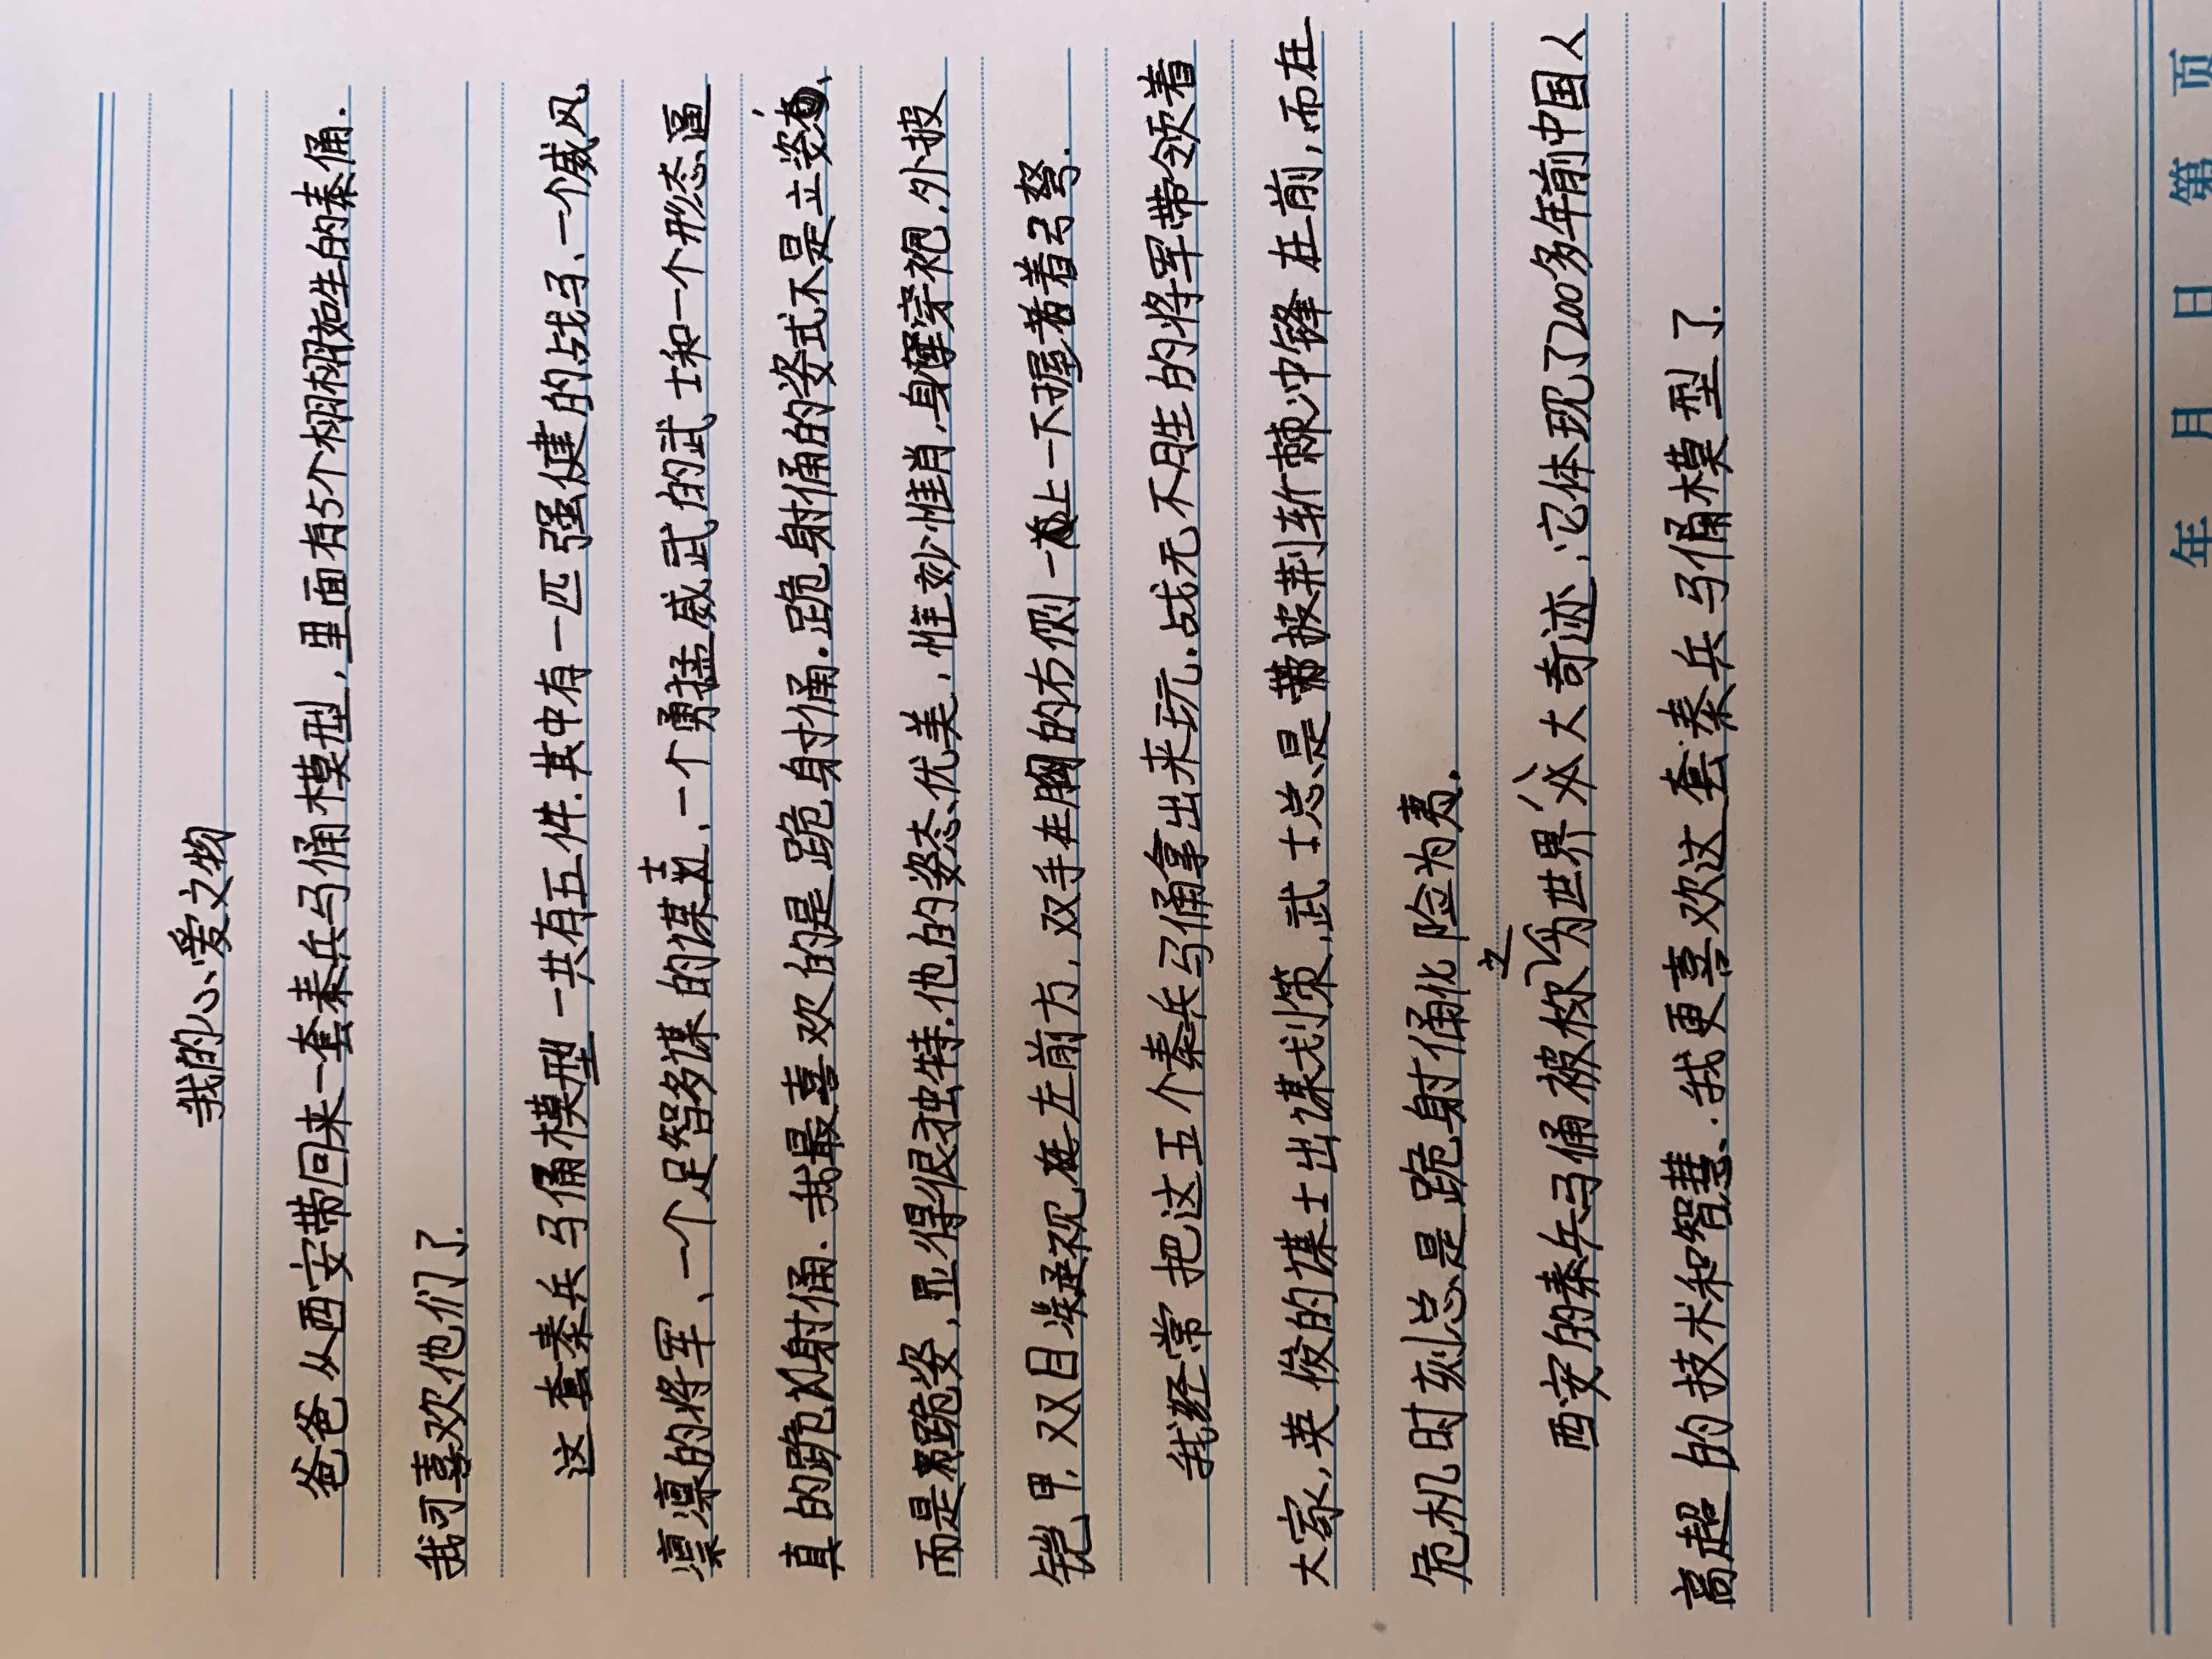 我的心爱之物
爸爸从西安带回来一套秦兵马俑模型，里面有5个栩栩如生的秦俑.
我可喜欢他们了.
这套秦兵马俑模型一共有五件.其中有一匹强健的战马、一个威风
凛凛的将军、一个足智多谋的谋士、一个勇猛威武的武士和一个形态逼
真的跪射俑.我最喜欢的是跪射俑.跪射俑的姿式不是立姿，
而是跪姿，显得很独特.他的姿态优美，惟妙惟肖.身穿袍.外披
铠甲.双目凝视左前方，双手在胸的右侧一上一下握着弓弩.
我经常把这五个秦兵马俑拿出来玩.战无不胜的将军带领着
大家，英俊的谋士出谋划策，武士总是披荆斩棘冲锋在前，而在
危机时刻总是跪射俑化险为夷.
西安的秦兵马俑被称之为世界八大奇迹；它体现了200多年前中国人
高超的技术和智慧.我更喜欢这套秦兵马俑模型了.
年 月 日 第 页